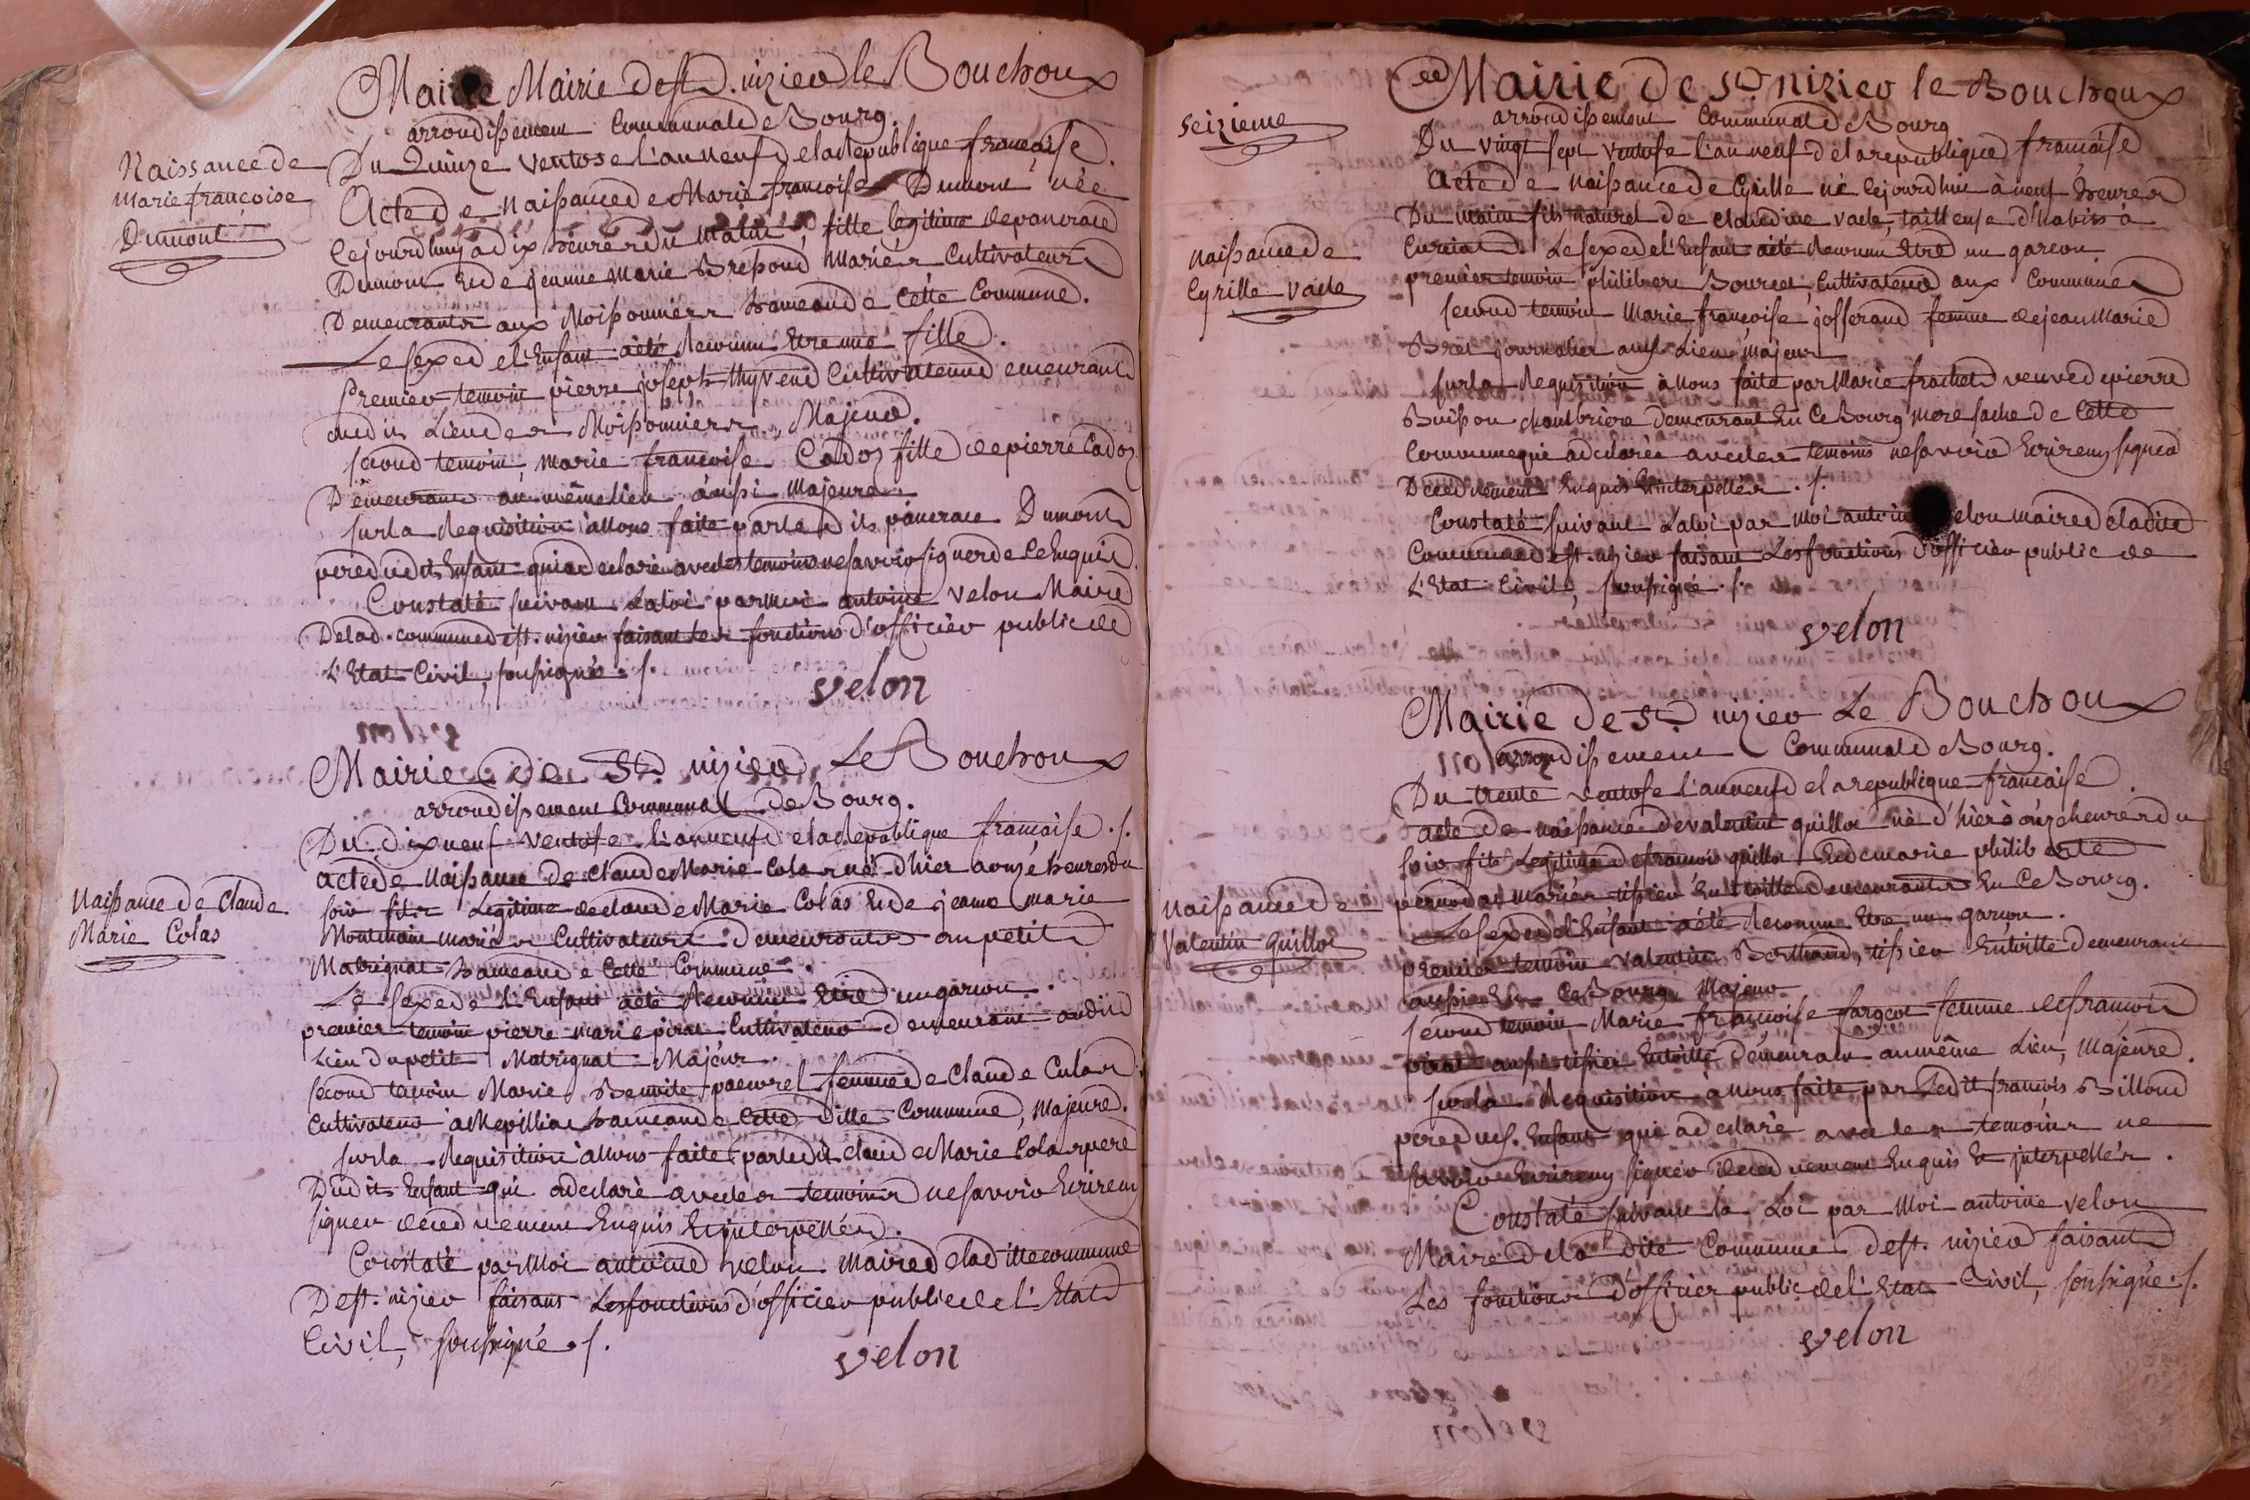 Mairie Mairie de st. nizier le Bouchoux
arrondissement Communal de Bourg.
Naissance de
Marie françoise
Dumont
Du Quinze Ventose l'an neuf de la Republique française.
Acte de Naissance de Marie françoise Dumont née
Cejourdhuy à dix heures du matin, fille legitime de pancrace
Dumont Et de jeanne Marie Brepond Mariés Cultivateurs
Demeurants aux Moissonniers hameau de Cette Commune.
Le sexe de l'Enfant a été Reconnu Etre une fille.
Premier temoin pierre joseph thyvend Cultivateur demeurant
audit Lieu des Moissonniers, Majeur.
second temoin, Marie françoise Cadoz fille de pierre Cadoz
Demeurant au même lieu aussi Majeure
sur la Requisition à Nous faite par led it pancrace Dumont
pere dudit Enfant qui a declaré avec les temoins ne savoir signer de ce Enquis.
Constaté suivant La loi par Moi antoine velon Maire
De lad. commune de st. nizier faisant les fonctions d'officier public de
L'Etat Civil, soussigné ./.
velon
Mairie de St. nizier Le Bouchoux
arrondissement Communal de Bourg.
Naissance de Claude
Marie Colas
Du dixneuf Ventose l'an neuf de la Republique française ./.
acte de Naissance de Claude Marie Colas né d'hier à onze heures du
soir fils Legitime de claude Marie Colas Et de jeanne marie
Montmain mariés Cultivateurs demeurants au petit
Matrignat hameau de Cette Commune.
Le sexe de L'Enfant a été Reconnu Etre un garçon.
premier temoin pierre marie pirat Cultivateur demeurant audit
Lieu du petit Matrignat Majeur.
second temoin Marie Benoite femme de Claude Culas
Cultivateur à Mepilliat hameau de Cette ditte Commune, Majeure.
sur la Requisition à Nous faite par ledit claude Marie Colas pere
Dudit Enfant qui a declaré avec les temoins ne savoir Ecrire ny
signer de ce duement Enquis Et interpellés.
Constaté par Moi antoine velon Maire de lad itte commune
De st. nizier faisant Les fonctions d'officier public de l'Etat
Civil, soussigné ./.
velon
Mairie de st. nizier le Bouchoux
arrondissement Communal de Bourg
seizieme
Naissance de
Cyrille vade
Du vingt sept ventose l'an neuf de la republique française
Acte de Naissance de Cyrille né cejourdhui à neuf heures
Du matin fils naturel de claudine vade, tailleuse d'habits à
Curciat. Le sexe de l'Enfant a été Reconnu Etre un garçon.
premier temoin philibert Bourcet, Cultivateur aux Communes
second temoin Marie françoise josserand femme de jean Marie
Bret journalier aud. Lieu, Majeurs
sur la Requisition à Nous faite par Marie frachet veuve de pierre
Buisson chambrière demeurant En Ce Bourg mere sache de Cette
Commune qui a declarée avec les temoins ne savoir Ecrire ny signer
De ce duement Enquis Et interpellés ./.
Constaté suivant La loi par Moi antoine velon maire de ladite
Commune de st. nizier faisant Les fonctions d'officier public de
L'Etat Civil, soussigné ./.
velon
Mairie de St. nizier Le Bouchoux
arrondissement Communal de Bourg.
Naissance de
Valentin Guillot
Du trente ventose l'an neuf de la republique française.
acte de naissance de valentin guillot né d'hier à onze heures du
soir fils Legitime de francois guillot Et de marie philiberte
pernodat mariés tissier En toille demeurants En Ce Bourg.
Le sexe de l'Enfant a été Reconnu Etre un garçon.
premier temoin valentin Berthaud, tissier En toille demeurant
aussi En Ce Bourg Majeur
second temoin Marie françoise fargeot femme de francois
pirat aussi tissier En toille Demeurant au même Lieu, Majeure.
sur la Requisition à nous faite par Ledit françois Billoud
pere dud. Enfant qui a declaré avec les temoins ne
savoir Ecrire ny signer de ce duement Enquis Et interpellés.
Constaté suivant la Loi par Moi antoine velon
Maire de la dite Commune de st. nizier faisant
Les fonctions d'officier public de l'Etat Civil, soussigné ./.
velon